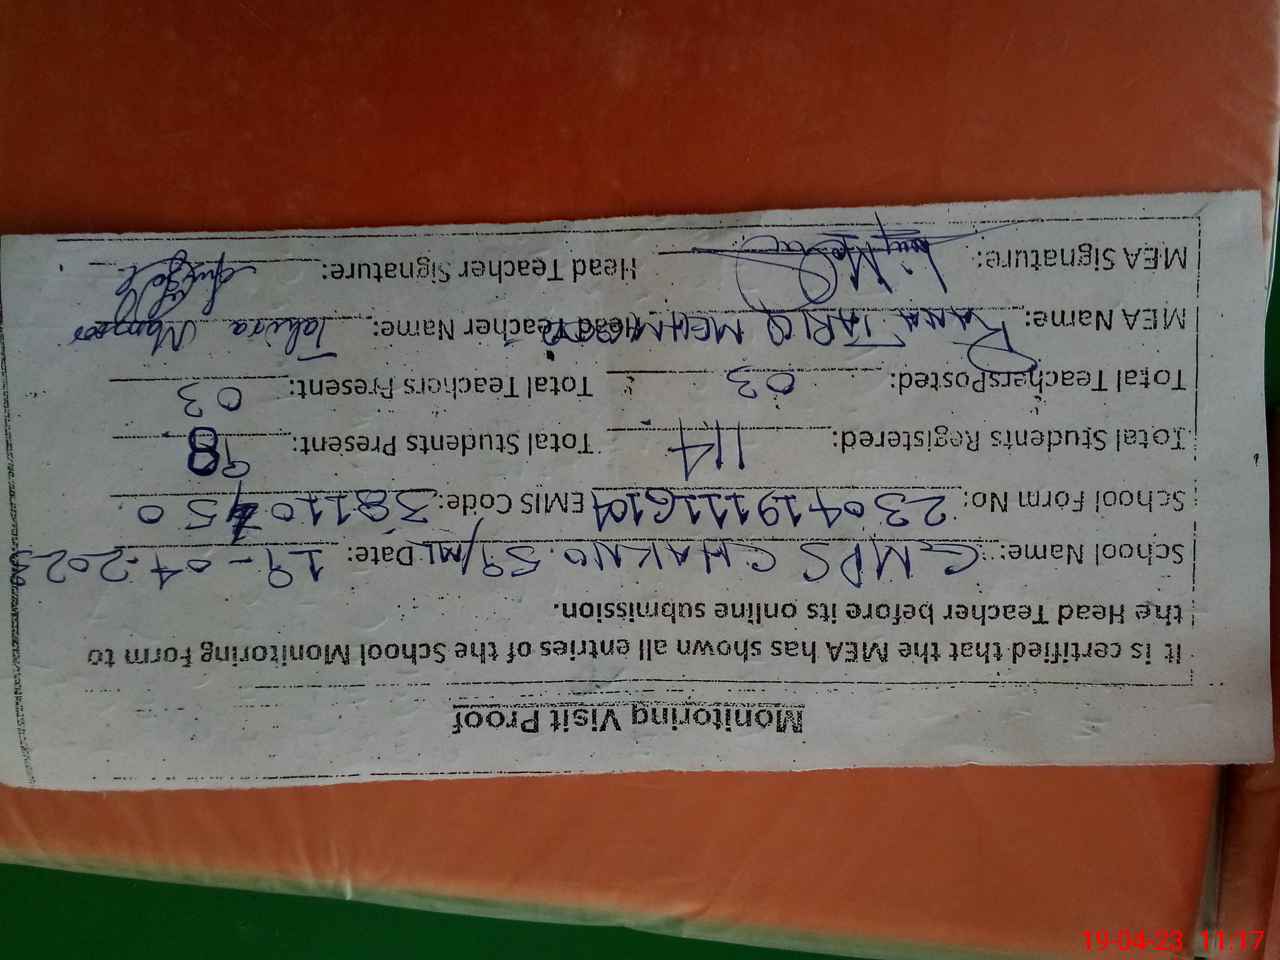 Monitoring Visit Proof
It is certified that the MEA has shown all entries of the School Monitoring Form to
the Head Teacher before its online submission.
School Name: GMPS CHAK NO. 59/ML Date: 19-04-2023
School Form No: 230419111G104 EMIS Code: 38110450
Total Students Registered: 114 Total Students Present: 98
Total Teachers Posted: 03 Total Teachers Present: 03
MEA Name: RANA TARIQ MEHMOOD Head Teacher Name: Tahira Manzoor
MEA Signature: Head Teacher Signature:
19-04-23 11:17